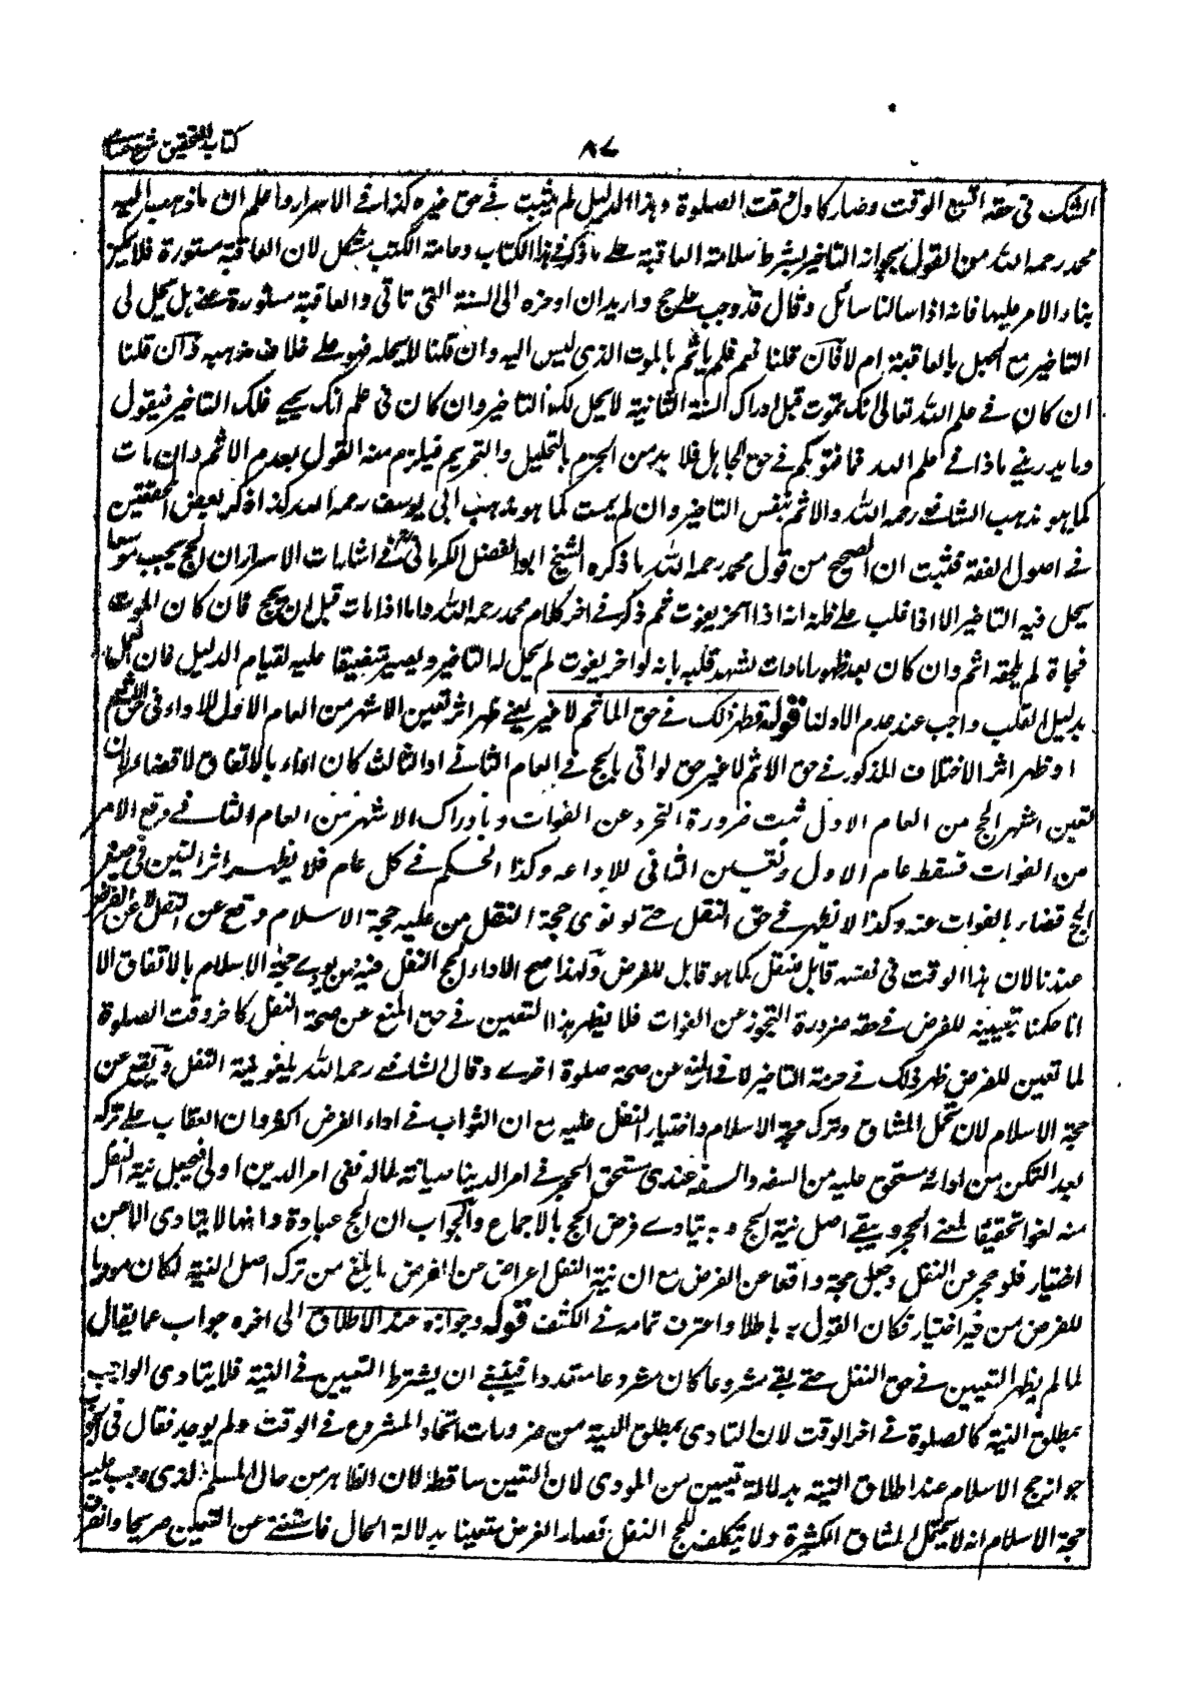 كتاب التحقيق شرح حسامى
٨٧
الشك فى حقه اتسع الوقت وصار كاول وقت الصلوة وهذا الدليل لم يثبت فى حق غيره كذا فى الاسرار واعلم ان ما ذهب اليه
محمد رحمه الله من القول بجواز التاخير بشرط سلامة العاقبة على ما ذكر فى هذا الكتاب وعامة الكتب مشكل لان العاقبة مستورة فلا يمكن
بناء الامر عليها فانه اذا سالنا سائل وقال قد وجب على حج واريد ان اوخره الى السنة التى تاتى والعاقبة مستورة عنى هل يحل لى
التاخير مع الجهل بالعاقبة ام لا فان قلنا نعم فلم ياثم بالموت الذى ليس اليه وان قلنا لا يحله فهو على خلاف مذهبه وان قلنا
ان كان فى علم الله تعالى انك تموت قبل ادراك السنة الثانية لا يحل لك التاخير وان كان فى علم انك يحيى فلك التاخير فيقول
وما يدرينى ماذا فى علم الله فما فتوىكم فى حق الجاهل فلا بد من الجزم بالتحليل والتحريم فيلزم منه القول بعدم الاثم وان مات
كما هو مذهب الشافعى رحمه الله والاثم بنفس التاخير وان لم يمت كما هو مذهب ابى يوسف رحمه الله كذا ذكر بعض المحققين
فى اصول الفقه فثبت ان الصحيح من قول محمد رحمه الله ما ذكره الشيخ ابو الفضل الكرمانى فى اشارات الاسرار ان الحج يجب موسعا
يحل فيه التاخير الا اذا غلب على ظنه انه اذا اخر يفوت ثم ذكر فى اخر كلام محمد رحمه الله واما اذا مات قبل ان يحج فان كان الموت
فجاة لم يلحقه اثم وان كان بعد ظهور امارات تشهد قلبه بانه لو اخر يفوت لم يحل له التاخير ويصير مضيقا عليه لقيام الدليل فان العمل
بدليل القلب واجب عند عدم الادلة قوله فظهر ذلك فى حق الماثم لا غير يعنى ظهر اثر تعين الاشهر من العام الاول للاداء فى حق الاثم
او ظهر اثر الاختلاف المذكور فى حق الاثم لا غير حتى لو اتى بالحج فى العام الثانى او الثالث كان اداء بالاتفاق لا قضاء لان
تعين اشهر الحج من العام الاول ثبت ضرورة التحرز عن الفوات وبادراك الاشهر من العام الثانى وقع الامن
من الفوات فسقط عام الاول وتعين الثانى للاداء وكذا الحكم فى كل عام فلا يظهر اثر التعين فى صيرورة
الحج قضاء بالفوات عنه وكذا لا تظهر فى حق النفل حتى لو نوى حجة النفل من عليه حجة الاسلام وقع عن النفل لا عن الفرض
عندنا لان هذا الوقت فى نفسه قابل للنفل كما هو قابل للفرض ولهذا صح الاداء لحج النفل فيه ممن يودى حجة الاسلام بالاتفاق الا
انا حكمنا بتعيينه للفرض فى حقه ضرورة التحرز عن الفوات فلا يظهر هذا التعين فى حق المنع عن صحة النفل كاخر وقت الصلوة
لما تعين للفرض ظهر ذلك فى حرمة التاخير لا فى المنع عن صحة صلوة اخرى وقال الشافعى رحمه الله يلغو نية النفل ويقع عن
حجة الاسلام لان تحمل المشاق وترك حجة الاسلام واختيار النفل عليه مع ان الثواب فى اداء الفرض اكثر وان العقاب على تركه
بعد التمكن من ادائه مستحق عليه من السفه والسفه عندى مستحق الحجر فى امر الدنيا صيانة لماله ففى امر الدين اولى فيجعل نية النفل
منه لغوا تحقيقا لمعنى الحجر ويبقى اصل نية الحج وبه يتادى فرض الحج بالاجماع والجواب ان الحج عبادة وانها لا يتادى الا عن
اختيار فلو حجر عن النفل وجعل حجه واقعا عن الفرض مع ان نية النفل اعراض عن الفرض ما بلغ من ترك اصل النية لكان موديا
للفرض من غير اختيار فكان القول به باطلا واعترف تمامه فى الكشف قوله وجوازه عند الاطلاق الى اخره جواب عما يقال
لما لم يظهر التعيين فى حق النفل حتى بقى مشروعا كان مشروعا متعددا فينبغى ان يشترط التعيين فى النية فلا يتادى الواجب
بمطلق النية كالصلوة فى اخر الوقت لان التادى بمطلق النية من ضرورات اتحاد المشروع فى الوقت ولم يوجد فقال فى الجواب
جواز حج الاسلام عند اطلاق النية بدلالة تعيين من المودى لان التعين ساقط لان الظاهر من حال المسلم الذى وجب عليه
حجة الاسلام انه لا يتحمل المشاق الكثيرة ولا يتكلف لحج النفل فصار الفرض متعينا بدلالة الحال فاستغنى عن التعيين صريحا وانصرف